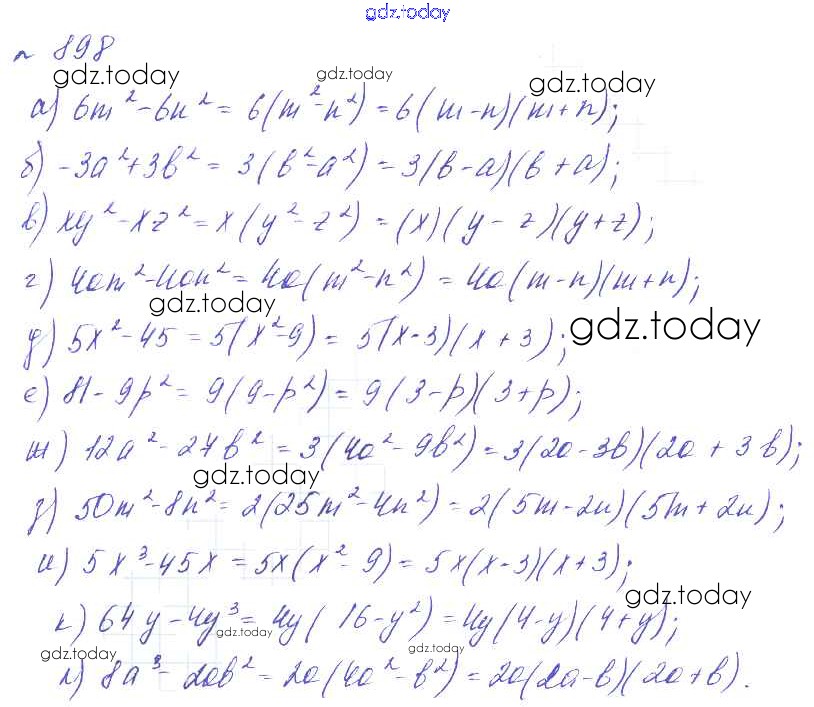 gdz.today
№ 898
gdz.today gdz.today gdz.today
а) 6m² - 6n² = 6(m² - n²) = 6(m - n)(m + n);
б) -3a² + 3b² = 3(b² - a²) = 3(b - a)(b + a);
в) xy² - xz² = x(y² - z²) = (x)(y - z)(y + z);
г) 4am² - 4an² = 4a(m² - n²) = 4a(m - n)(m + n);
gdz.today gdz.today
д) 5x² - 45 = 5(x² - 9) = 5(x - 3)(x + 3);
е) 81 - 9p² = 9(9 - p²) = 9(3 - p)(3 + p);
ж) 12a² - 27b² = 3(4a² - 9b²) = 3(2a - 3b)(2a + 3b);
gdz.today
з) 50m² - 8n² = 2(25m² - 4n²) = 2(5m - 2n)(5m + 2n);
и) 5x³ - 45x = 5x(x² - 9) = 5x(x - 3)(x + 3);
gdz.today
к) 64y - 4y³ = 4y(16 - y²) = 4y(4 - y)(4 + y);
gdz.today gdz.today gdz.today
л) 8a³ - 2ab² = 2a(4a² - b²) = 2a(2a - b)(2a + b).